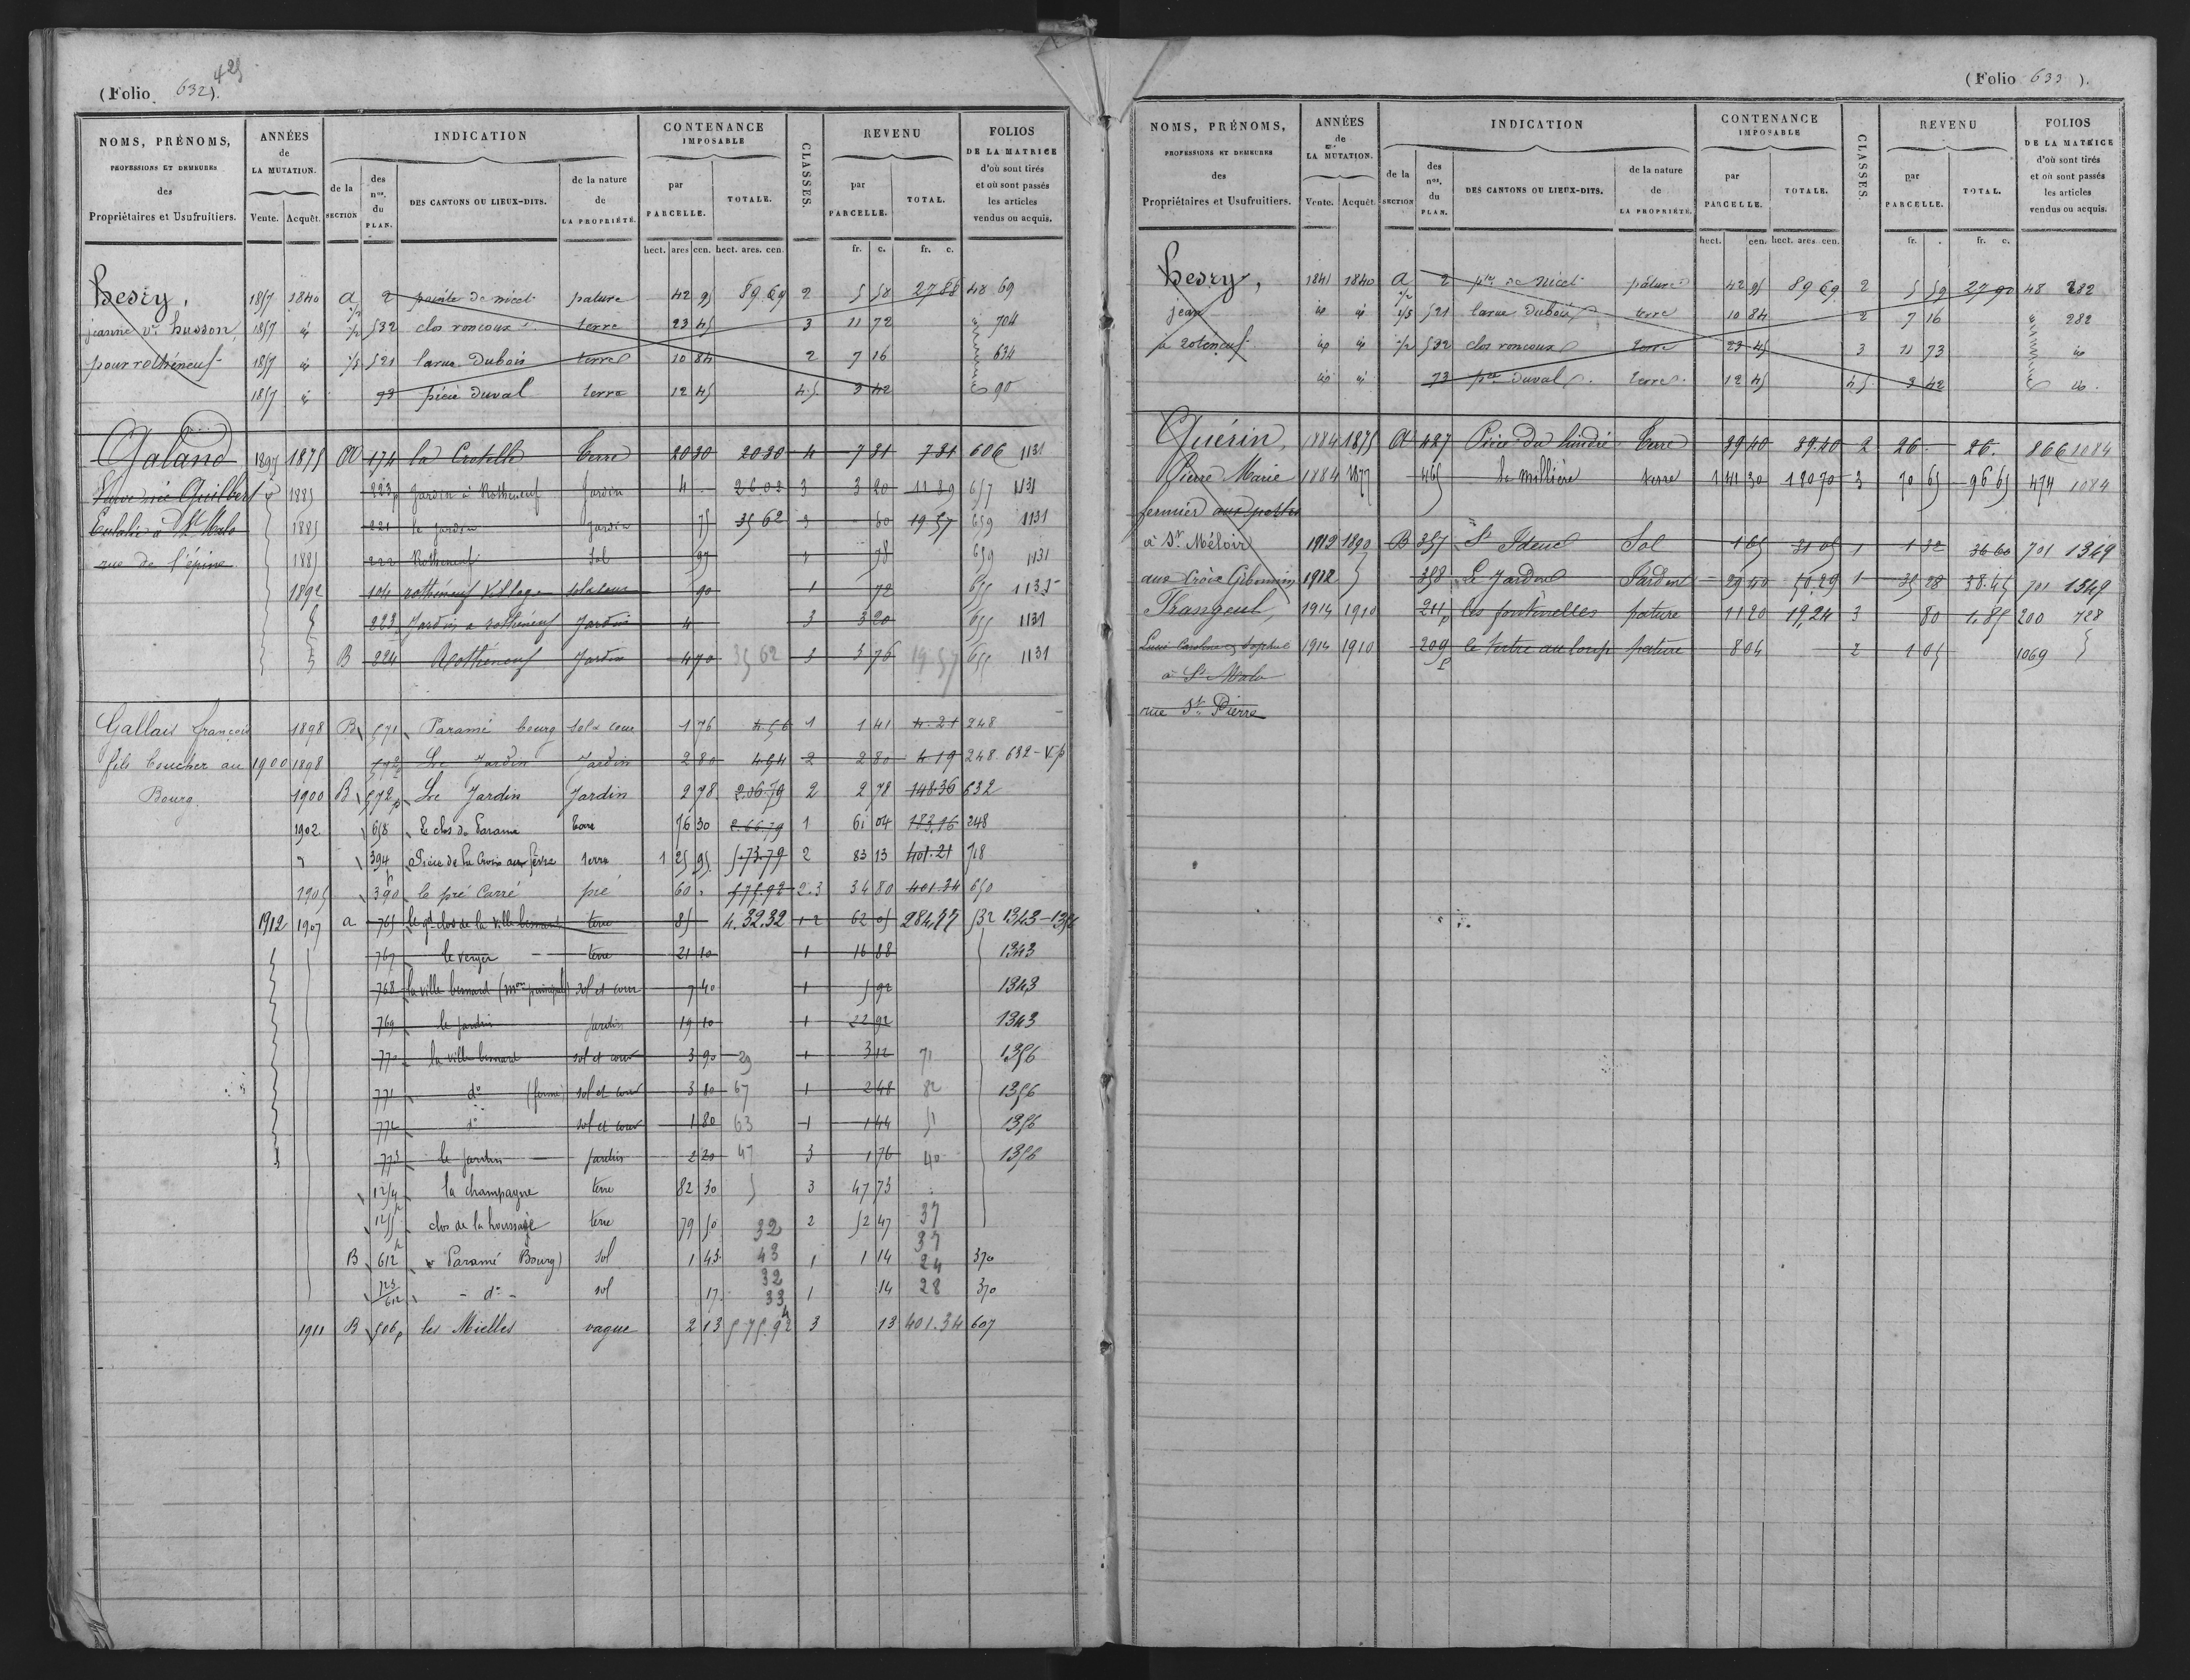 (Folio 632).
425
NOMS, PRÉNOMS, PROFESSIONS ET DEMEURES des Propriétaires et Usufruitiers.
ANNÉES de LA MUTATION. Vente. Acquêt.
INDICATION de la SECTION des nos. du PLAN. DES CANTONS OU LIEUX-DITS. de la nature de LA PROPRIÉTÉ.
CONTENANCE IMPOSABLE par PARCELLE. TOTALE.
CLASSES.
REVENU par PARCELLE. TOTAL.
FOLIOS DE LA MATRICE d'où sont tirés et où sont passés les articles vendus ou acquis.
hect. ares cen. hect. ares. cen. fr. c. fr. c.
hesry, 1857 1840 a 2 pointe de nicet pature 42 95 89.69 2 5 58 27 88 48 69
jeanne ve husson 1857 id 1/2 532 clos roncoux terre 23 45 3 11 72 " 704
pour rothéneuf 1857 id 1/5 521 larue Dubois terre 10 84 2 7 16 634
1857 id 73 pièce duval terre 12 45 4.5. 3 42 90
Galand 1897 1875 A 174 la Crotelle terre 20 80 20 80 4 7 81 7 81 606 1131
Veuve née Guilbert 1885 223p Jardin à Rotheneuf Jardin 4 . 26 03 3 3 20 11 89 657 1131
Eulalie à St Malo 1885 221 le jardin Jardin 75 35 62 3 60 19.57 659 1131
rue de l'épine 1885 222 Rotheneuf Sol 97 1 78 659 1131
1892 104 rothéneuf Village sol et cour 90 1 72 655 1135
223 Jardin a rothéneuf Jardin 4 3 3 20 655 1131
B 224 Rotheneuf Jardin 4 70 35 62 3 3 76 19.57 655 1131
Gallais François 1898 B 571 Paramé bourg sol & cour 1 76 4.56 1 1 41 4.21 248
fils boucher au 1900 1898 572p Le Jardin Jardin 2 80 4.94 2 2 80 4.19 248 632 - V.p
Bourg. 1900 B 572p Le Jardin Jardin 2 78 2.06.79 2 2 78 148.36 632
1902 658 Le clos de Parame terre 76 30 2.66.79 1 61 04 183.16 248
" 394 Pièce de la Croix aux fèvre terre 1 25 95 5.73.79 2 83 13 401.21 718
1905 390p le pré Carré pré 60 " 575.92 2.3 34 80 401.34 650
1912 1907 a 765 le gd clos de la ville bernard terre 85 4.32.32 1-2 62 05 284,77 532 1343-1356
767 le verger terre 21 10 1 16 88 1343
768 la ville bernard (mon principale) sol et cour 7 40 1 5 92 1343
769 le jardin jardin 19 10 1 22 92 1343
770 la ville bernard sol et cour 3 90 29 1 3 12 71 1356
771 do (ferme) sol et cour 3 10 67 1 2 48 82 1356
772 do sol et cour 1 80 63 1 1 44 51 1356
773 le jardin jardin 2 20 47 3 1 76 40 1356
1254 la champagne terre 82 30 5 3 47 73
1255p clos de la houssaye terre 79 50 32 2 52 47 37
B 612p Paramé Bourg) sol 1 43 43 1 1 14 24 370
723/612 - do - sol 17 33 1 14 28 370
1911 B 506p les Mielles vague 2 13 575.92 3 13 401.34 607
(Folio 633).
NOMS, PRÉNOMS, PROFESSIONS ET DEMEURES des Propriétaires et Usufruitiers.
ANNÉES de LA MUTATION. Vente. Acquêt.
INDICATION de la SECTION des nos. du PLAN. DES CANTONS OU LIEUX-DITS. de la nature de LA PROPRIÉTÉ.
CONTENANCE IMPOSABLE par PARCELLE. TOTALE.
CLASSES.
REVENU par PARCELLE. TOTAL.
FOLIOS DE LA MATRICE d'où sont tirés et où sont passés les articles vendus ou acquis.
hect. cen. hect. ares. cen. fr. . fr. c.
hesry, 1841 1840 a 2 pte de nicet pâture 42 95 89 69 2 5 59 27 90 48 282
jean id id 1/5 521 larue Dubois terre 10 84 2 7 16 " 282
a roteneuf id id 1/2 532 clos roncoux terre 23 45 3 11 73 id
id id 73 pce duval terre 12 45 4.5 3 42 id
Guérin, 1884 1875 A 427 Pièce du hindré terre 39 40 39.40 2 26. 26. 866 1084
Pierre Marie 1884 1877 465 La Millière terre 1 41 30 18070 3 70 65 96 65 474 1084
fermier aux portes
à St Méloir 1912 1890 B 357 St Ideuc Sol 1 65 31 05 1 1 32 36 60 701 1349
aux Croix Gibouin 1912 358 Le Jardin Jardin 29 40 50.29 1 35 28 38.45 701 1349
Thangeul, 1914 1910 211p les fontenelles pature 11 20 19,24 3 80 1.85 200 728
Lucie Caroline Sophie 1914 1910 209p le tertre au loup pature 8 04 2 1 05 1069
à St Malo
rue St Pierre